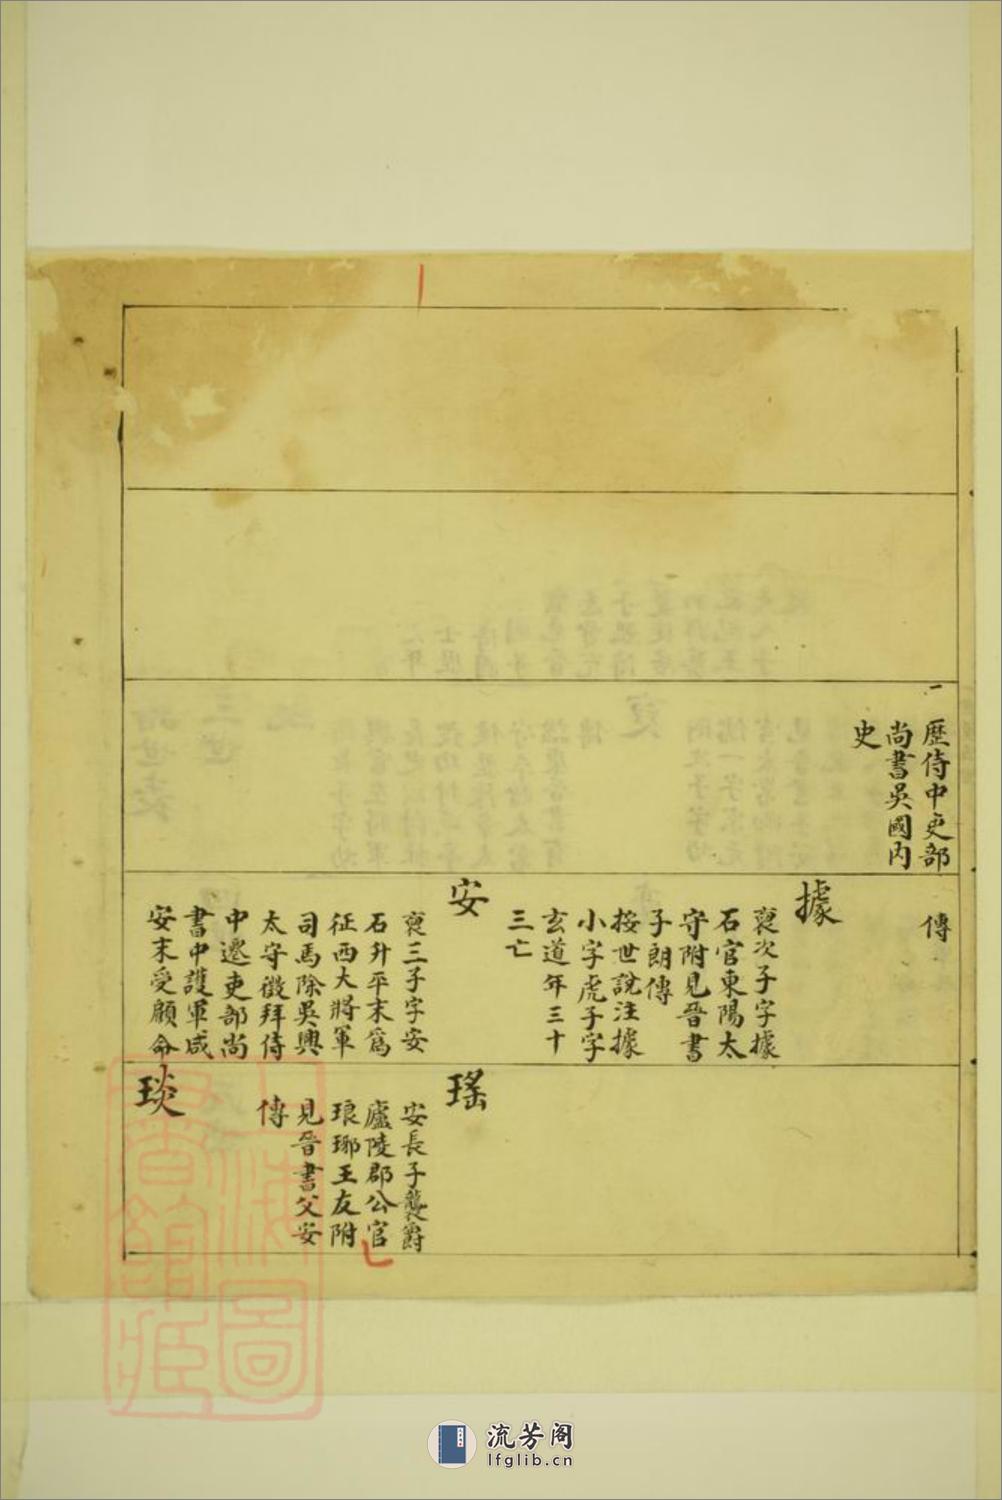 歷侍中吏部
尚書吳國內
史
傳
據
裒次子字據
石官東陽太
守附見晉書
子朗傳
按世說注據
小字虎子字
玄道年三十
三亡
安
裒三子字安
石升平末爲
征西大將軍
司馬除吳興
太守徵拜侍
中遷吏部尚
書中護軍咸
安末受顧命
瑤
安長子襲爵
廬陵郡公官
琅琊王友附
見晉書父安
傳
琰
上海圖
書館藏
流芳阁
lfglib.cn